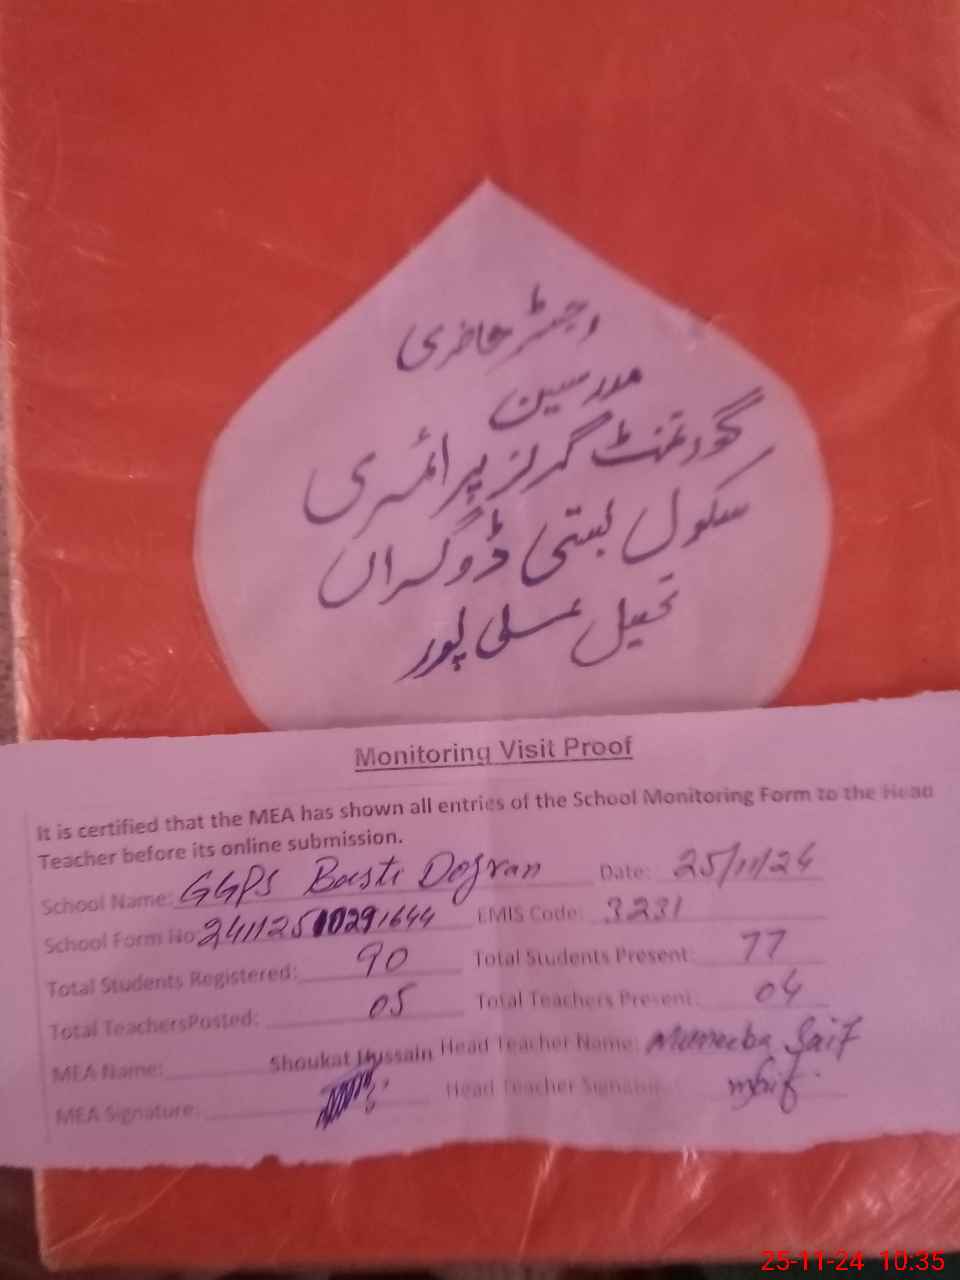 رجسٹر حاضری
مدرسین
گورنمنٹ گرلز پرائمری
سکول بستی ڈوگراں
تحصیل علی پور
Monitoring Visit Proof
It is certified that the MEA has shown all entries of the School Monitoring Form to the Head
Teacher before its online submission.
School Name: GGPS Basti Dogran Date: 25/11/24
School Form No 24112510291644 EMIS Code: 3231
Total Students Registered: 90 Total Students Present: 77
Total TeachersPosted: 05 Total Teachers Present: 04
MEA Name: Shoukat Hussain Head Teacher Name: Muneeba Saif
MEA Signature: Head Teacher Signatur
25-11-24 10:35